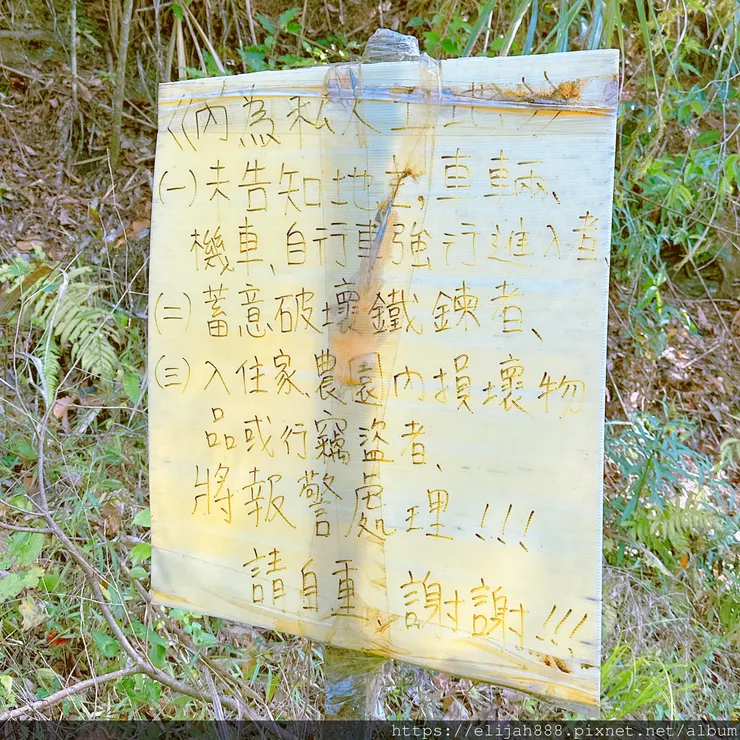 《內為私人土地》
(一)未告知地主,車輛、
機車、自行車強行進入者、
(二)蓄意破壞鐵鍊者、
(三)入住家、農園內損壞物
品或行竊盜者、
將報警處理!!!
請自重,謝謝!!!
https://elijah888.pixnet.net/album